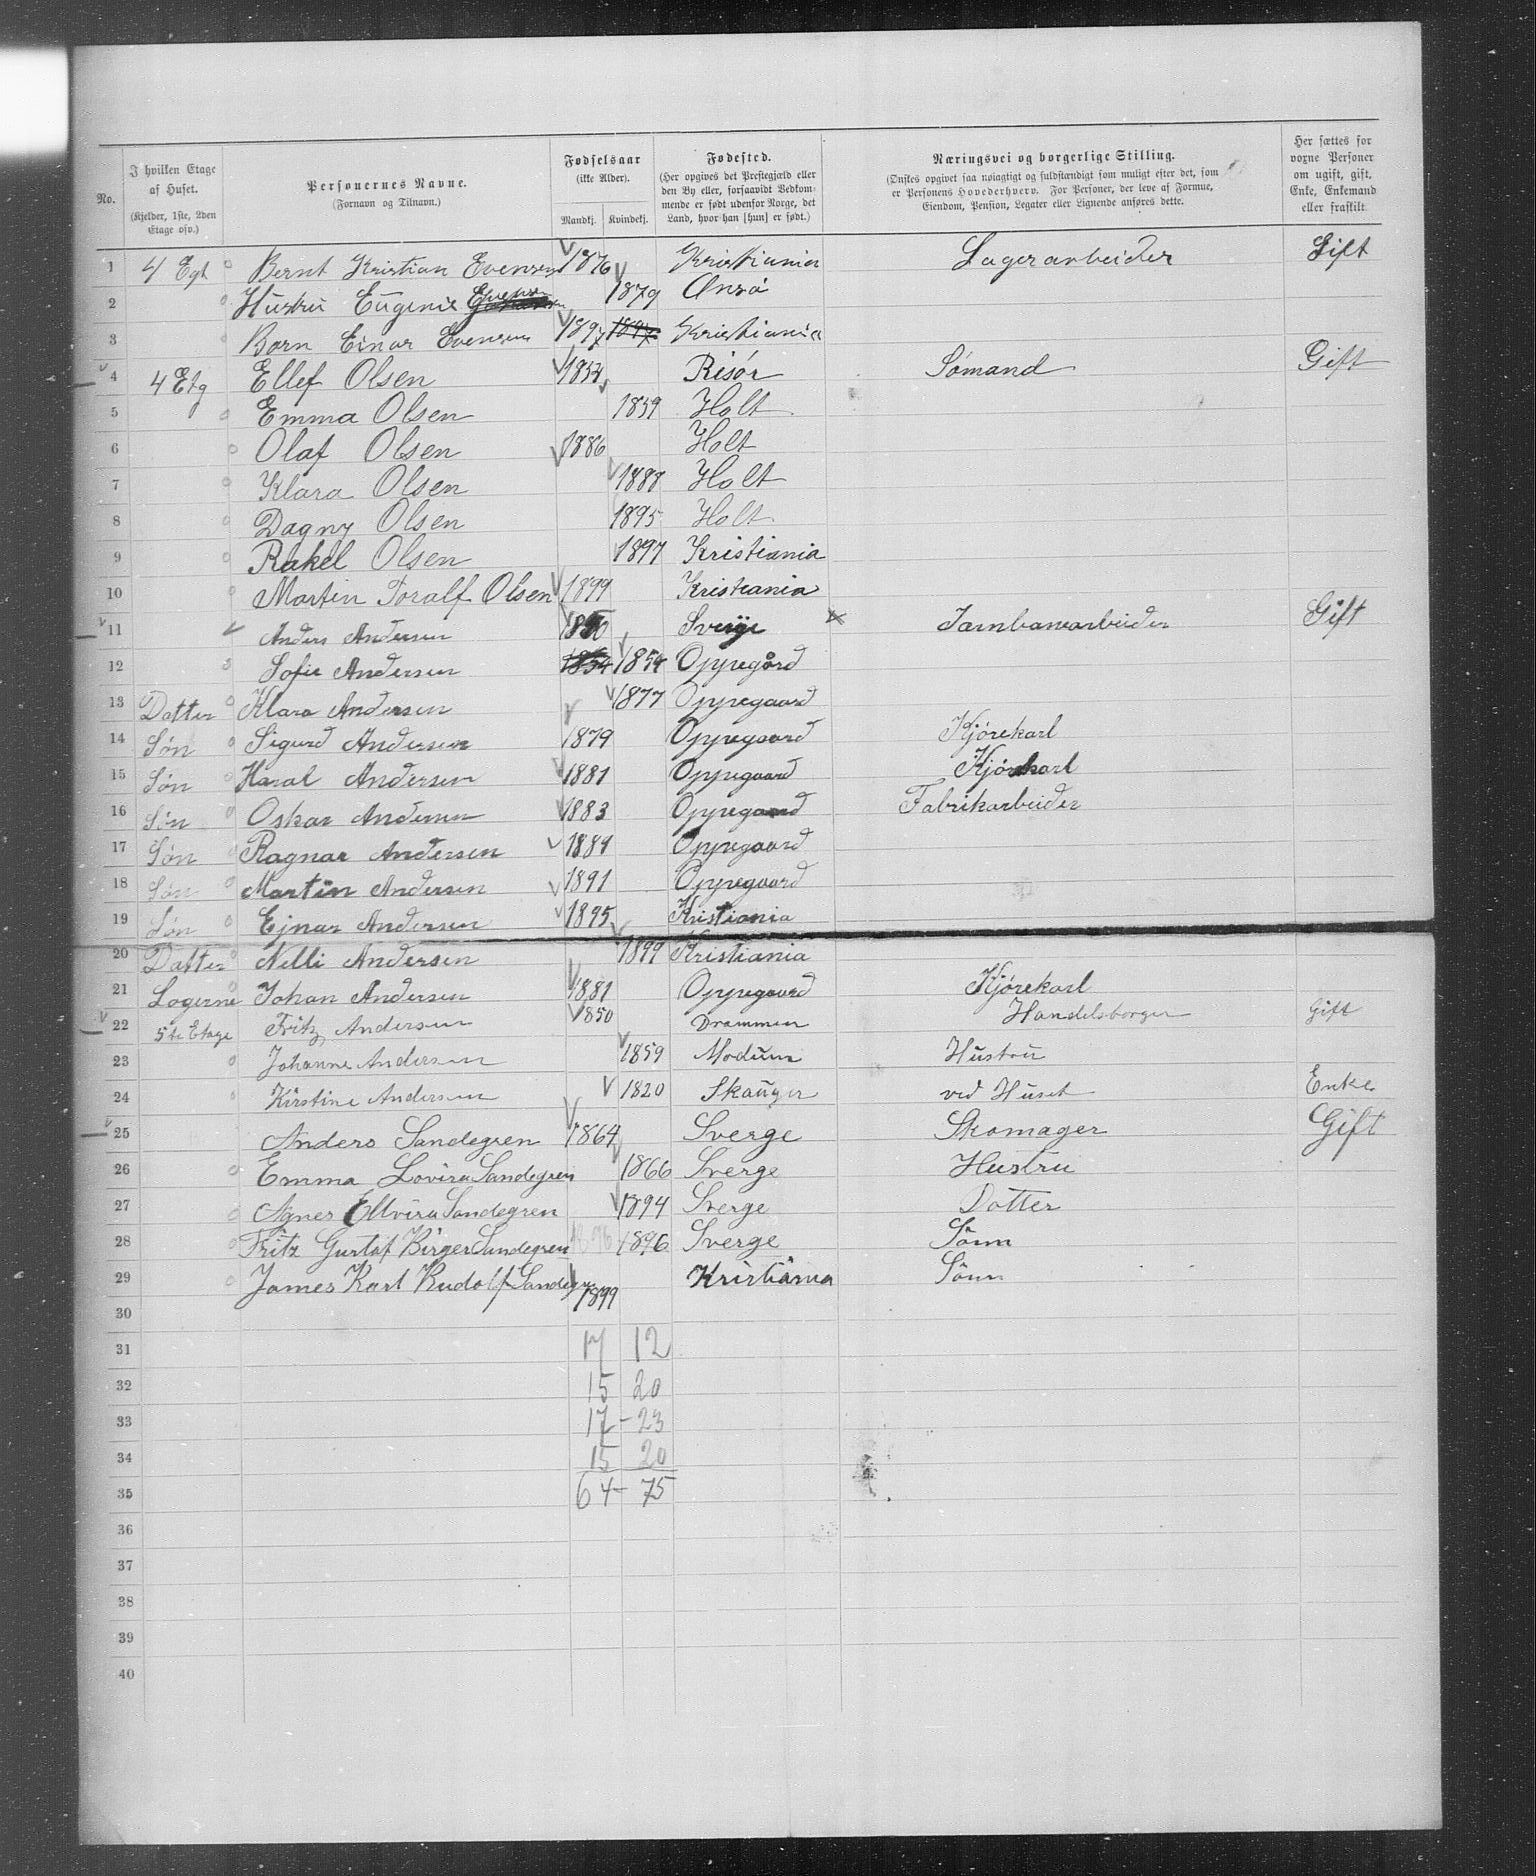 No.
I hvilken Etage af Huset.
(Kjelder, 1ste, 2den Etage osv.)
Personernes Navne.
(Fornavn og Tilnavn.)
Fødselsaar
(ikke Alder).
Mandkj. Kvindekj.
Fødested.
(Her opgives det Prestegjæld eller den By eller, forsaavidt Vedkommende er født udenfor Norge, det Land, hvor han [hun] er født.)
Næringsvei og borgerlige Stilling.
(Ønskes opgivet saa nøiagtigt og fuldstændigt som muligt efter det, som er Personens Hovederhverv. For Personer, der leve af Formue, Eiendom, Pension, Legater eller Lignende anføres dette.
Her sættes for voxne Personer om ugift, gift, Enke, Enkemand eller fraskilt.
1 4 Egt Bernt Kristian Evensen 1876 Kristiania Lagerarbeider Gift
2 Hustru Eugenie Evensen 1879 Onsø
3 Barn Einar Evensen 1897 1897 Kristiania
4 4 Etg Ellef Olsen 1853 Risør Sømand Gift
5 Emma Olsen 1859 Holt
6 Olaf Olsen 1886 Holt
7 Klara Olsen 1888 Holt
8 Dagny Olsen 1895 Holt
9 Rakel Olsen 1897 Kristiania
10 Martin Toralf Olsen 1899 Kristiania
11 Anders Andersen 1850 Sverije Jærnbanearbeider Gift
12 Sofie Andersen 1854 1854 Oppegård
13 Datter Klara Andersen 1877 Oppegaard
14 Søn Sigurd Andersen 1879 Oppegaard Kjørekarl
15 Søn Haral Andersen 1881 Oppegaard Kjørekarl
16 Søn Oskar Andersen 1883 Oppegaard Fabrikarbeider
17 Søn Ragnar Andersen 1889 Oppegaard
18 Søn Martin Andersen 1891 Oppegaard
19 Søn Ejnar Andersen 1895 Kristiania
20 Datter Nelli Andersen 1899 Kristiania
21 Logerne Johan Andersen 1881 Oppegaard Kjørekarl
22 5te Etage Fritz Andersen 1850 Drammen Handelsborger Gift
23 Johanne Andersen 1859 Modum Hustru
24 Kirstine Andersen 1820 Skauger ved Huset Enke
25 Anders Sandegren 1864 Sverge Skomager Gift
26 Emma Lovisa Sandegren 1866 Sverge Hustru
27 Agnes Ellvira Sandegren 1894 Sverge Datter
28 Fritz Gustaf Birger Sandegren 1896 1896 Sverge Sönn
29 James Karl Rudolf Sandegren 1899 Kristiania Sönn
30
31 17 12
32 15 20
33 17 - 23
34 15 20
35 64 - 75
36
37
38
39
40